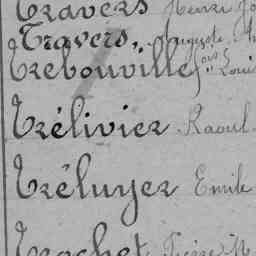 Travers Henri
Travers, Auguste
Trebouville Louis
Trélivier Raoul
Tréluyer Emile
Trochet Pierre M